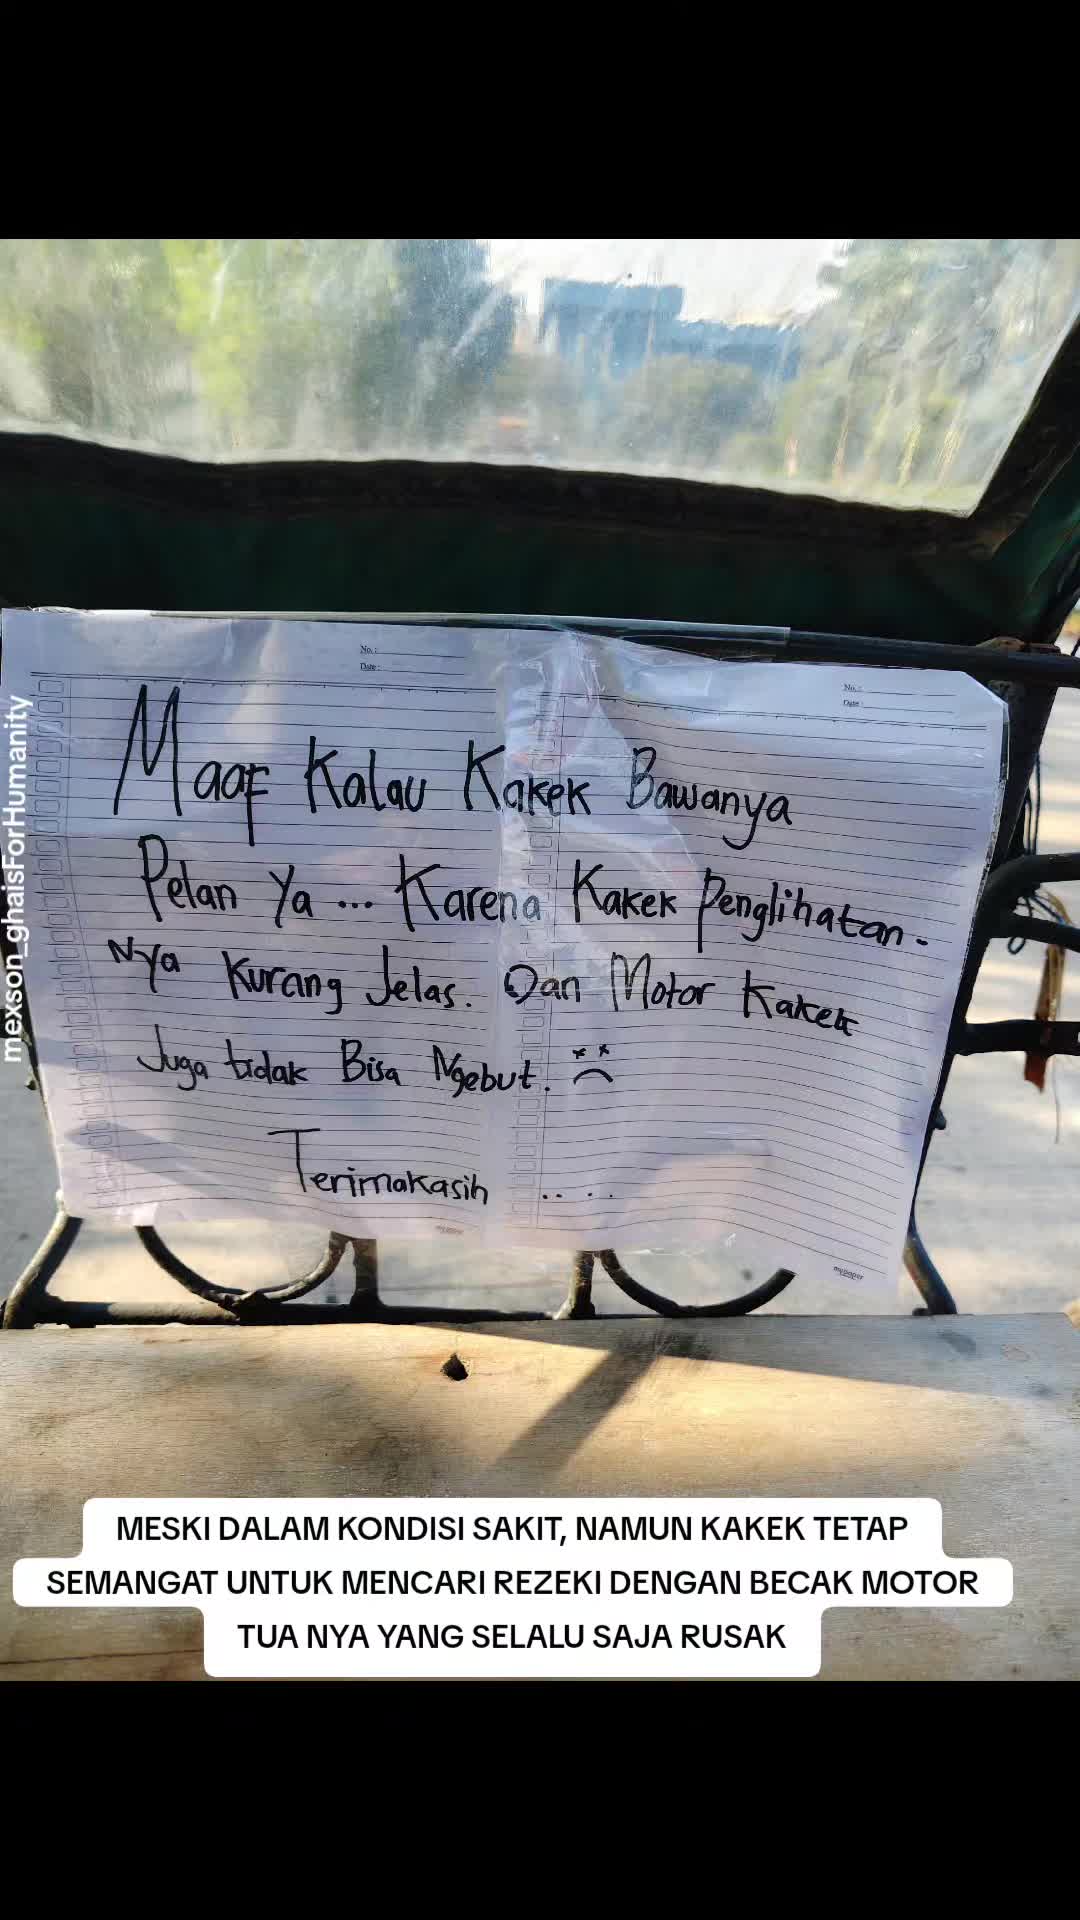 No. :
Date :
No. :
Date :
Maaf Kalau Kakek Bawanya
Pelan Ya ... Karena Kakek Penglihatan-
Nya Kurang Jelas. Dan Motor Kakek
Juga tidak Bisa Ngebut.
Terimakasih .. ..
mypaper
mexson_ghaisForHumanity
MESKI DALAM KONDISI SAKIT, NAMUN KAKEK TETAP
SEMANGAT UNTUK MENCARI REZEKI DENGAN BECAK MOTOR
TUA NYA YANG SELALU SAJA RUSAK